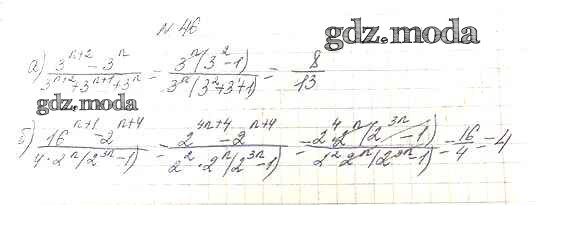 N 46
gdz.moda
а) (3^(n+2) - 3^n)/(3^(n+2) + 3^(n+1) + 3^n) = (3^n(3^2 - 1))/(3^n(3^2 + 3 + 1)) = 8/13
gdz.moda
б) (16^(n+1) - 2^(n+4))/(4·2^n(2^(3n) - 1)) = (2^(4n+4) - 2^(n+4))/(2^2·2^n(2^(3n) - 1)) = (2^4·2^n(2^(3n) - 1))/(2^2·2^n(2^(3n) - 1)) = 16/4 = 4